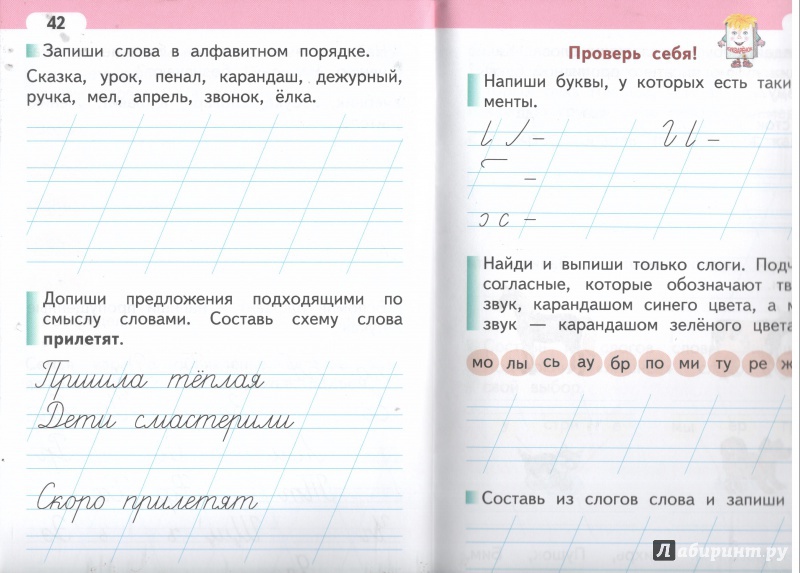 42
Запиши слова в алфавитном порядке.
Сказка, урок, пенал, карандаш, дежурный,
ручка, мел, апрель, звонок, ёлка.
Допиши предложения подходящими по
смыслу словами. Составь схему слова
прилетят.
Пришла тёплая
Дети смастерили
Скоро прилетят
Проверь себя!
Напиши буквы, у которых есть таки
менты.
Найди и выпиши только слоги. Подч
согласные, которые обозначают тв
звук, карандашом синего цвета, а м
звук — карандашом зелёного цвета
мо лы сь ау бр по ми ту ре ж
Составь из слогов слова и запиши
Лабиринт.ру